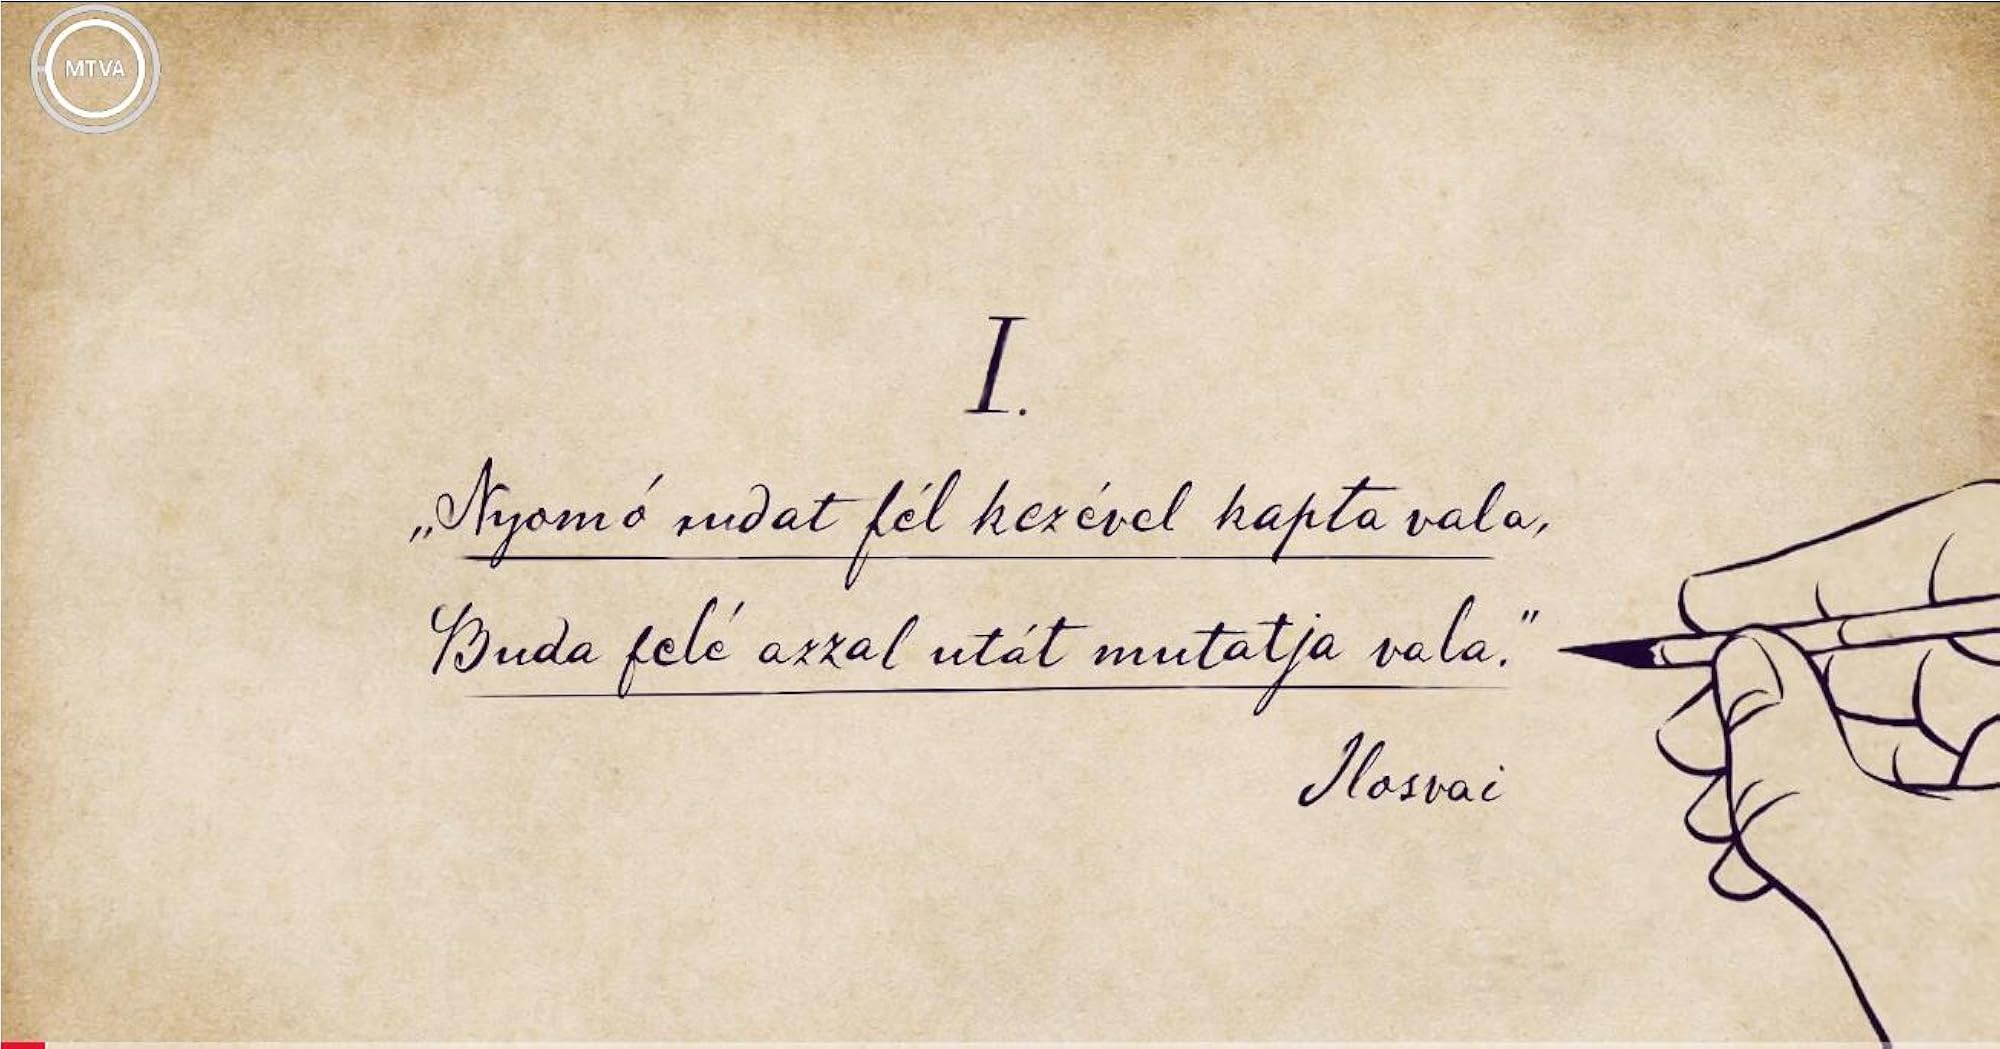 MTVA
I.
„Nyomó rudat fél kezével kapta vala,
Buda felé azzal utát mutatja vala."
Ilosvai